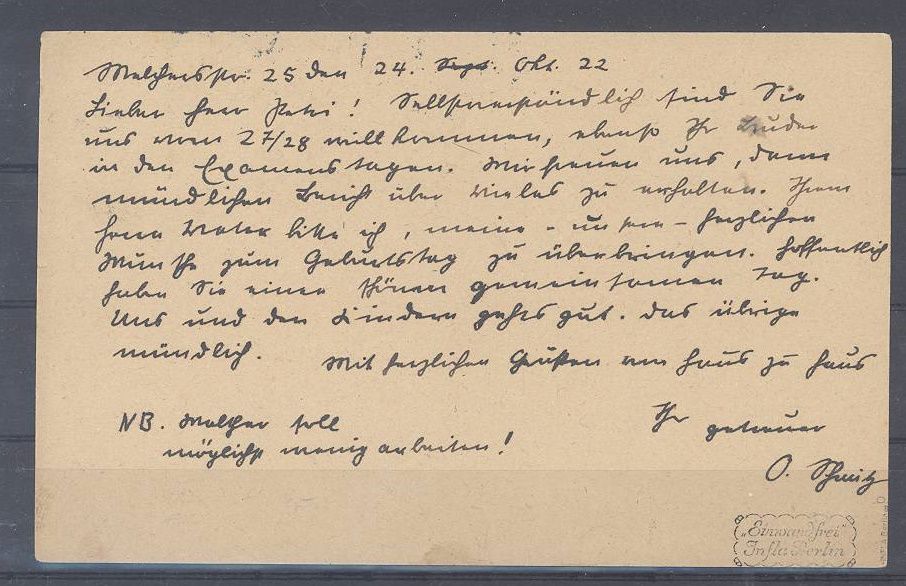 Melchersstr. 25 den 24. Sept. Okt. 22
Lieber Herr Petri! Selbstverständlich sind Sie
uns vom 27/28 willkommen, ebenso Ihr Bruder
in den Examenstagen. Wir freuen uns, dann
mündlichen Bericht über vieles zu erhalten. Ihrem
Herrn Vater bitte ich, meine - unsre - herzlichen
Wünsche zum Geburtstag zu überbringen. Hoffentlich
haben Sie einen schönen gemeinsamen Tag.
Uns und den Kindern gehts gut. Das übrige
mündlich.
Mit herzlichen Grüßen von Haus zu Haus
Ihr getreuer
O. Schmitz
NB. Walther soll
möglichst wenig arbeiten!
„Einwandfrei"
Infla Berlin